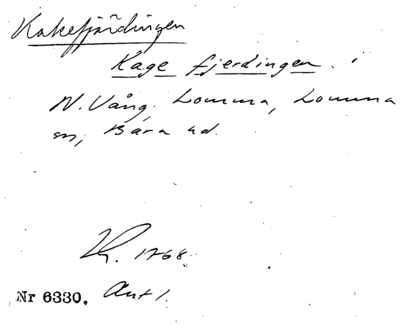 Kakefjärdingen
Kage fjerdingen. i
N. Vång, Lomma, Lomma
sn, Bara hd.
1768.
Nr 6330. Akt 1.